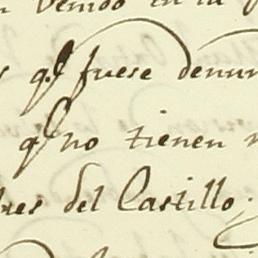 venido en la
s q.e fuese denun
q.e no tienen
res del Castillo;